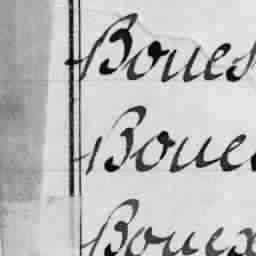 Boues
Boues
Bouex